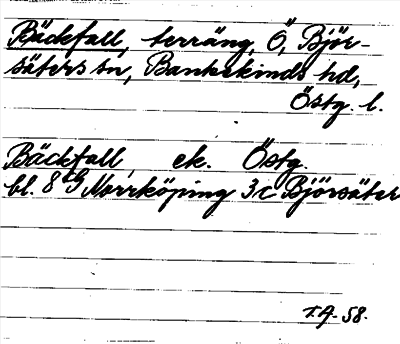 Bäckfall, terräng, Ö, Björ-
säters sn, Bankekinds hd,
Östg. l.
Bäckfall, ek. Östg.
bl. 8G Norrköping 3c Björsäter
T.A. 58.